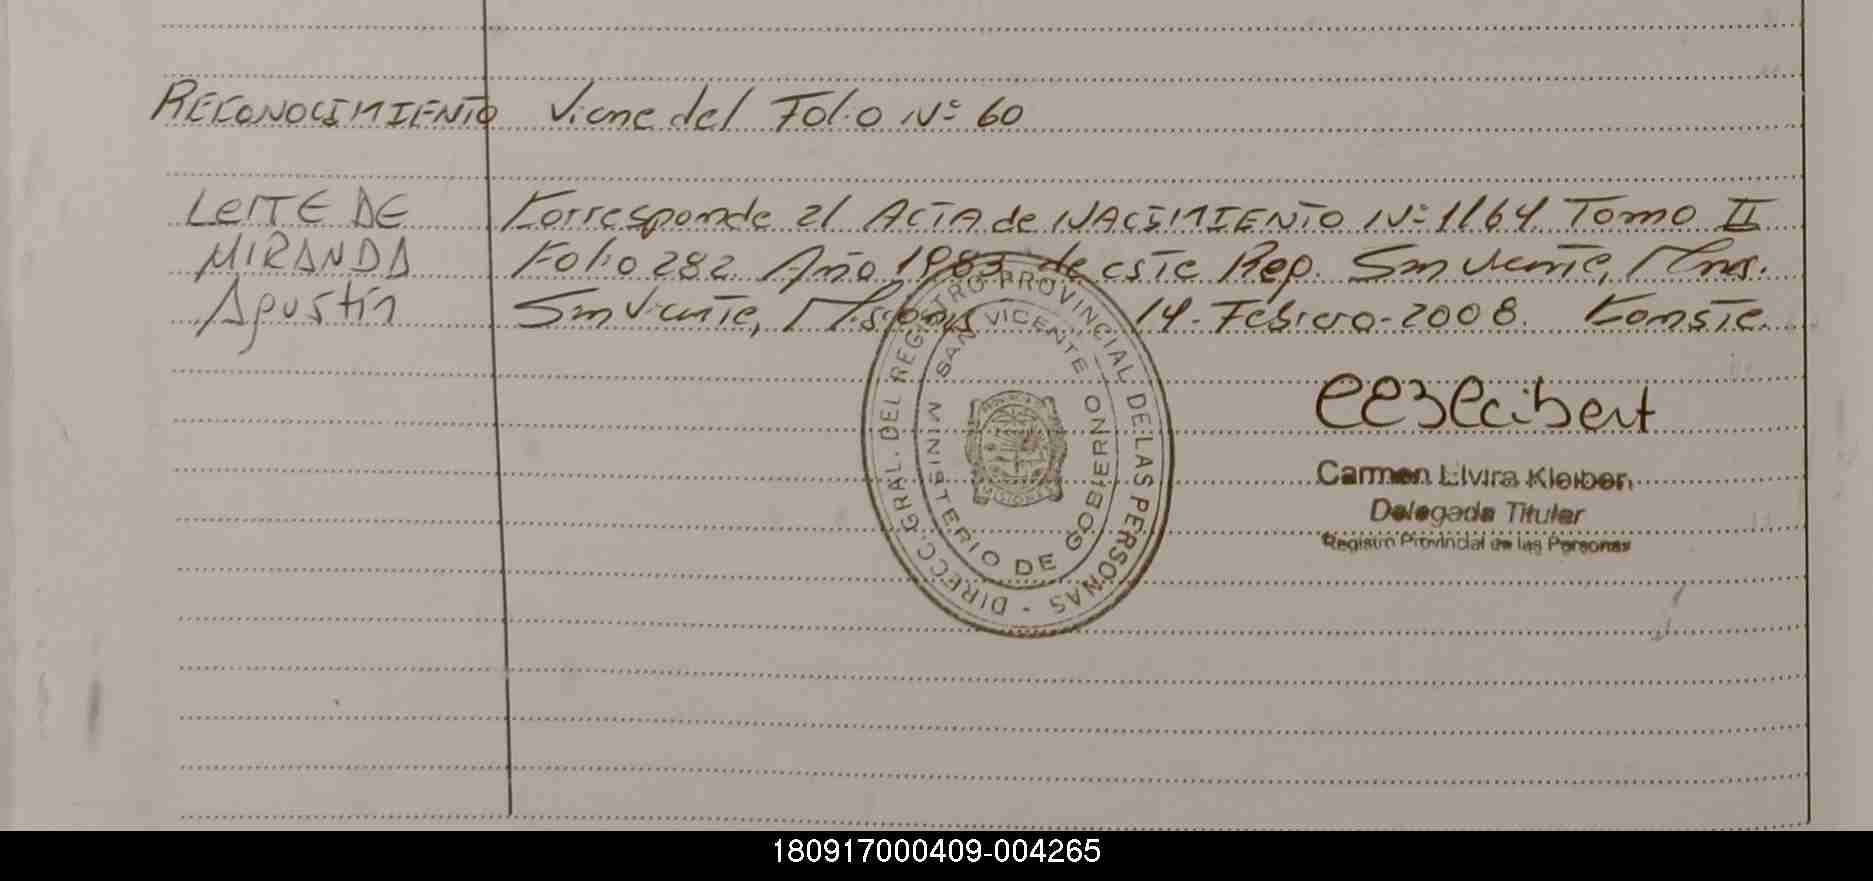 RECONOCIMIENTO Viene del Folio Nº 60
LEITE DE Corresponde al ACTA de NACIMIENTO Nº 1164 Tomo II
MIRANDA Folio 282 Año 1983 de este Rep. San Vicente, Mnes.
Agustín San Vicente, Misiones 14-Febrero-2008. Conste.
DIRECC. GRAL. DEL REGISTRO PROVINCIAL DE LAS PERSONAS -
MINISTERIO DE GOBIERNO
SAN VICENTE
PROVINCIA DE
MISIONES
Carmen Elvira Kleiber
Delegada Titular
Registro Provincial de las Personas
180917000409-004265